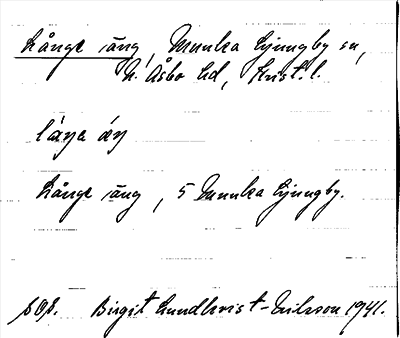 Långe äng, Munka Ljungby sn,
N. Åsbo hd, Krist. l.
låŋa äŋ
Långe äng, 5 Munka Ljungby.
Birgit Lundkvist-Nilsson 1941.